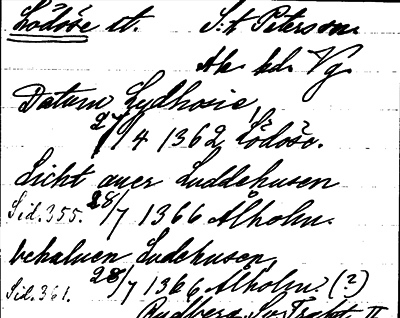 Lödöse st. S:t Peterson
Ale hd. Vg.
Datum Lydhosie,
27/4 1362 Lödöse.
Licht over Luddehusen
Sid. 355. 28/7 1366 Ålholm.
behaluen Ludehusen,
Sid. 361. 28/7 1366 Ålholm. (?)
Rydberg Sv. Trakt. II